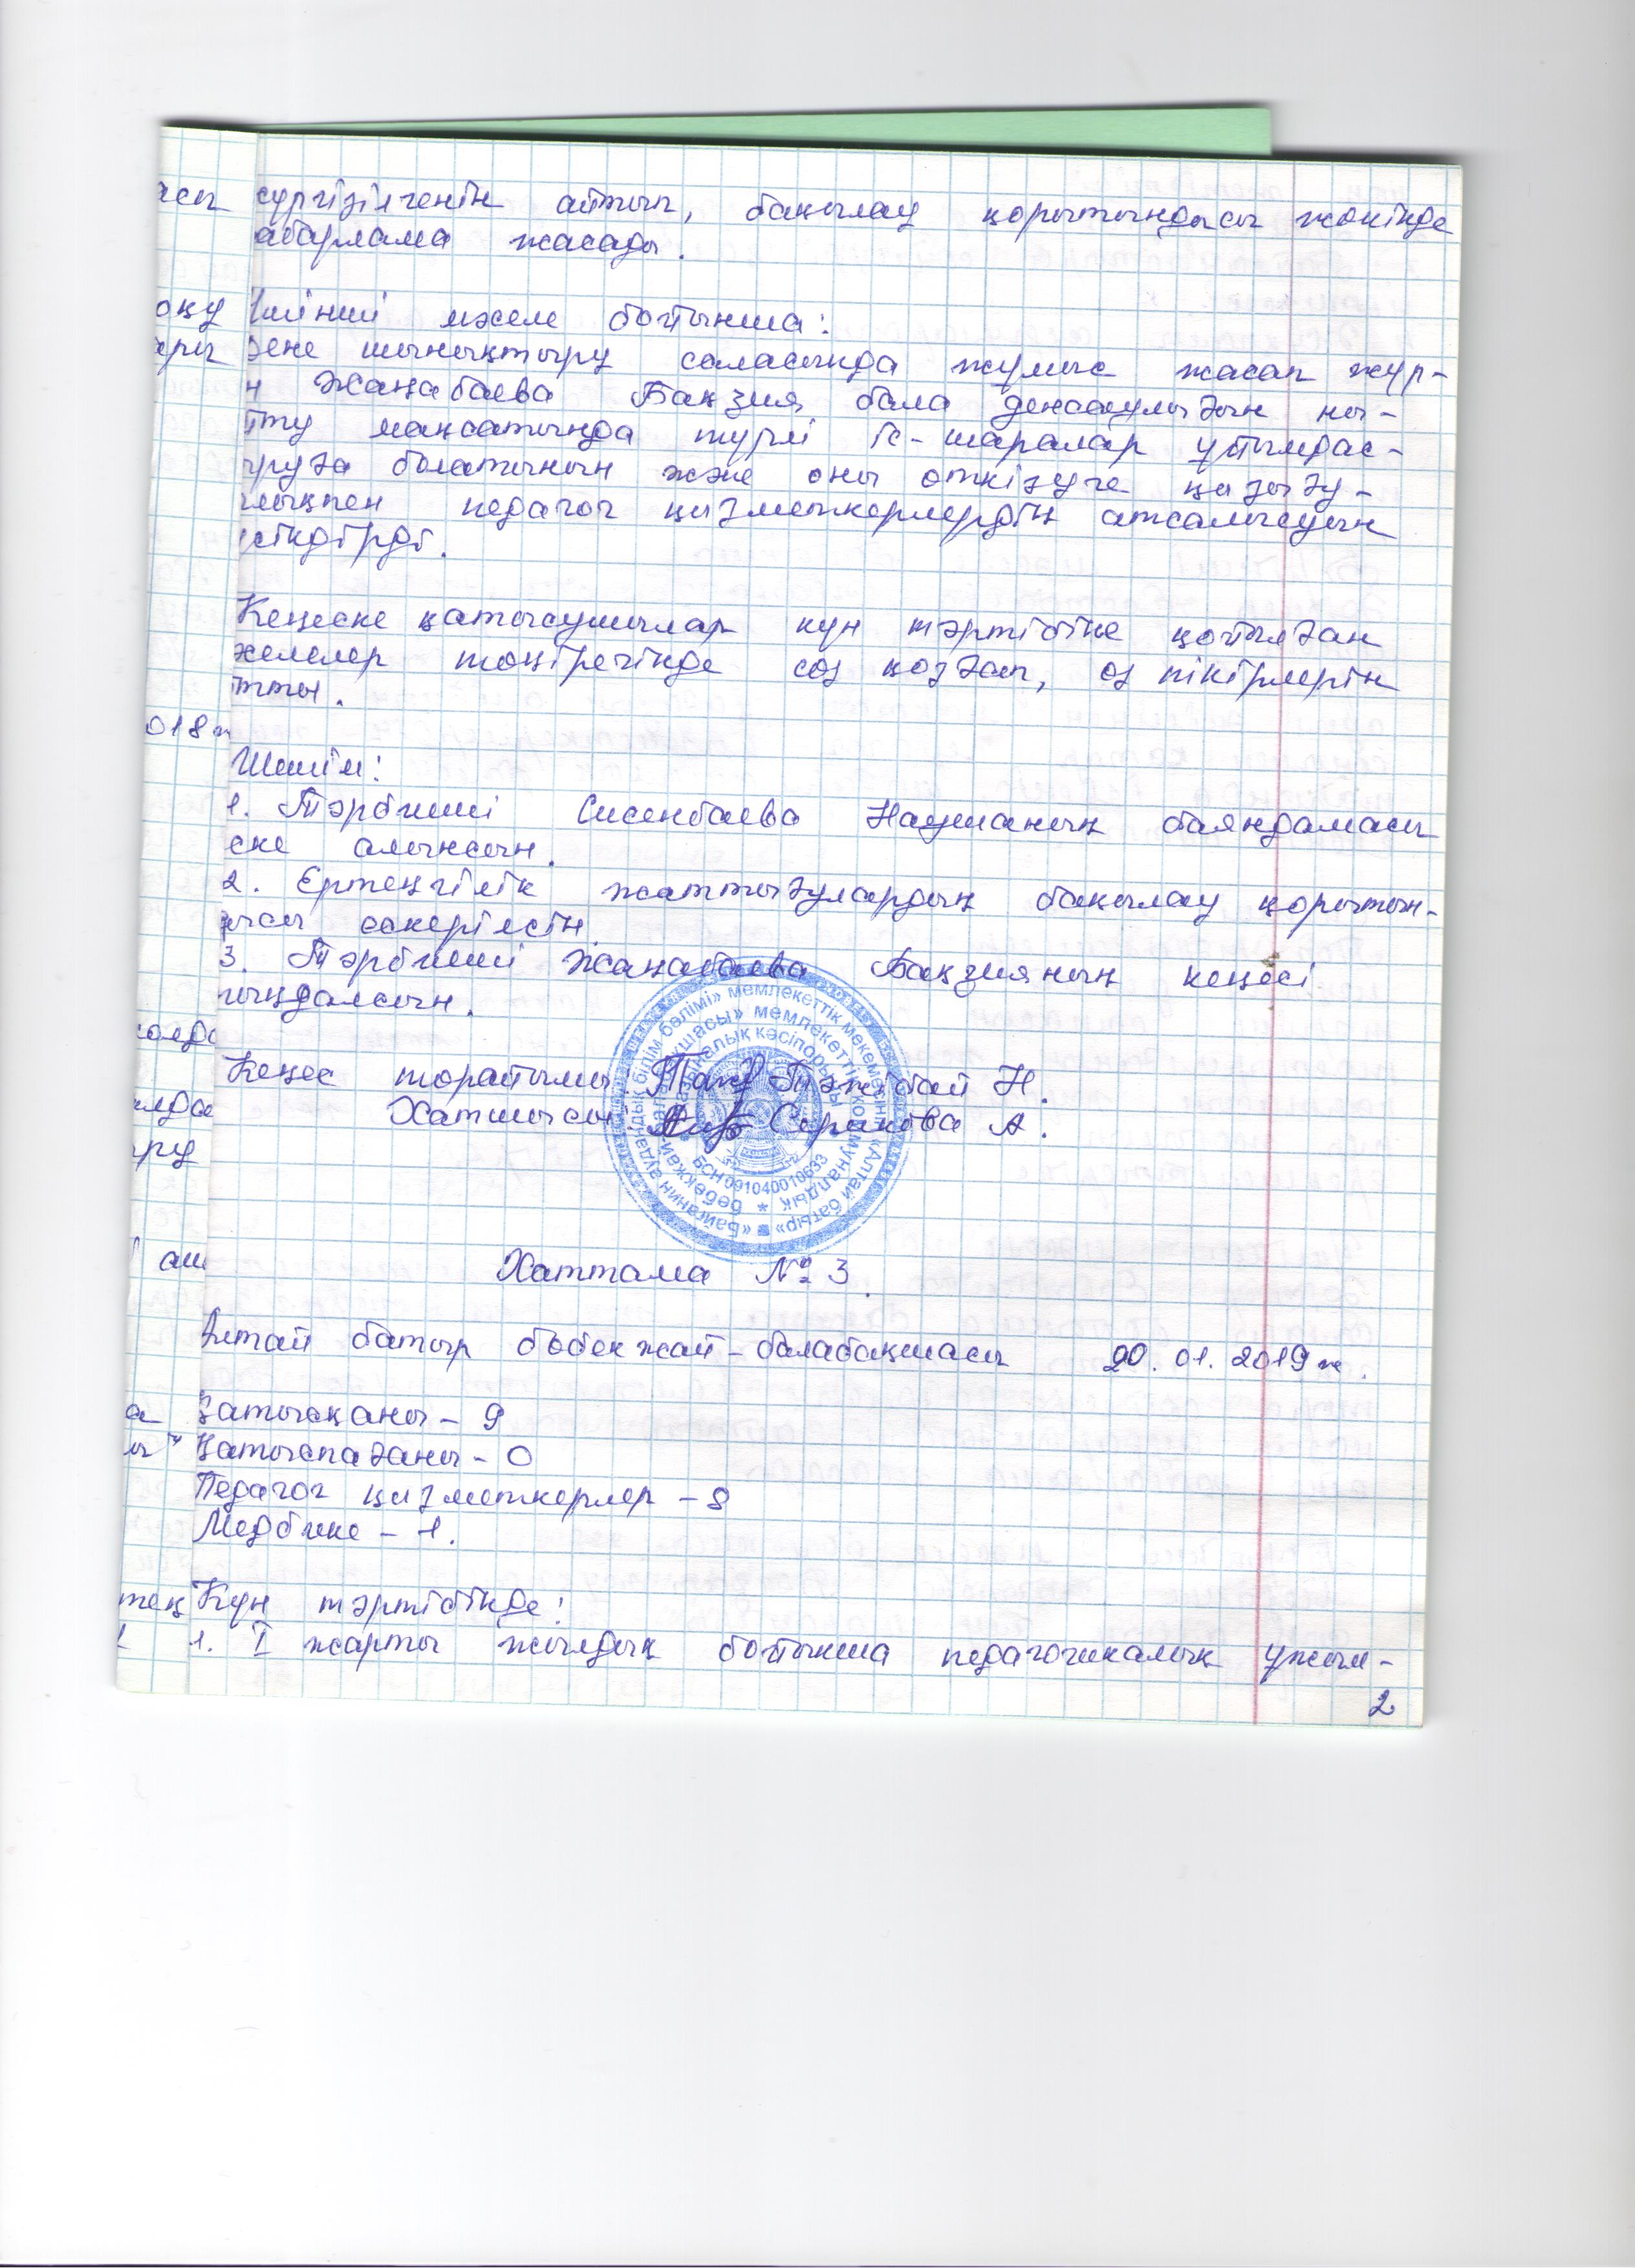 сүргізілгенін айтып, бақылау қорытындысы жөнінде
абарлама жасады.
шінші мәселе бойынша:
оқу
дене шынықтыру саласында жұмыс жасап жүр-
н Жаңабаева Бақзия бала денсаулығын ны-
йту мақсатында түрлі іс-шаралар ұйымдас-
ыруға болатынын және оны өткізуге қызығу-
лықпен педагог қызметкерлердің атсалысуын
сіндірді.
Кеңеске қатысушылар күн тәртібіне қойылған
селелер төңірегінде сөз қозғап, өз пікірлерін
йтты.
018ж
Шешім:
1. Тәрбиеші Сисенбаева Наушаның баяндамасы
ске алынсын.
2. Ертеңгілік жаттығулардың бақылау қорытын-
дысы ескерілсін.
3. Тәрбиеші Жаңабаева Бақзияның кеңесі
тыңдалсын.
Кеңес төрайымы: Тәжібай Н.
Хатшысы: Серикова А.
«Байғанин аудандық білім бөлімі» мемлекеттік мекемесінің «Алтай батыр»
бөбекжай-балабақшасы» мемлекеттік коммуналдық
қазыналық кәсіпорыны
БСН 091040010633
Хаттама № 3.
Алтай батыр бөбекжай-балабақшасы 20.01.2019ж.
Қатысқаны - 9
Қатыспағаны - 0
Педагог қызметкерлер - 8
Медбике - 1.
тең Күн тәртібінде:
1. I жарты жылдық бойынша педагогикалық ұжым-
2